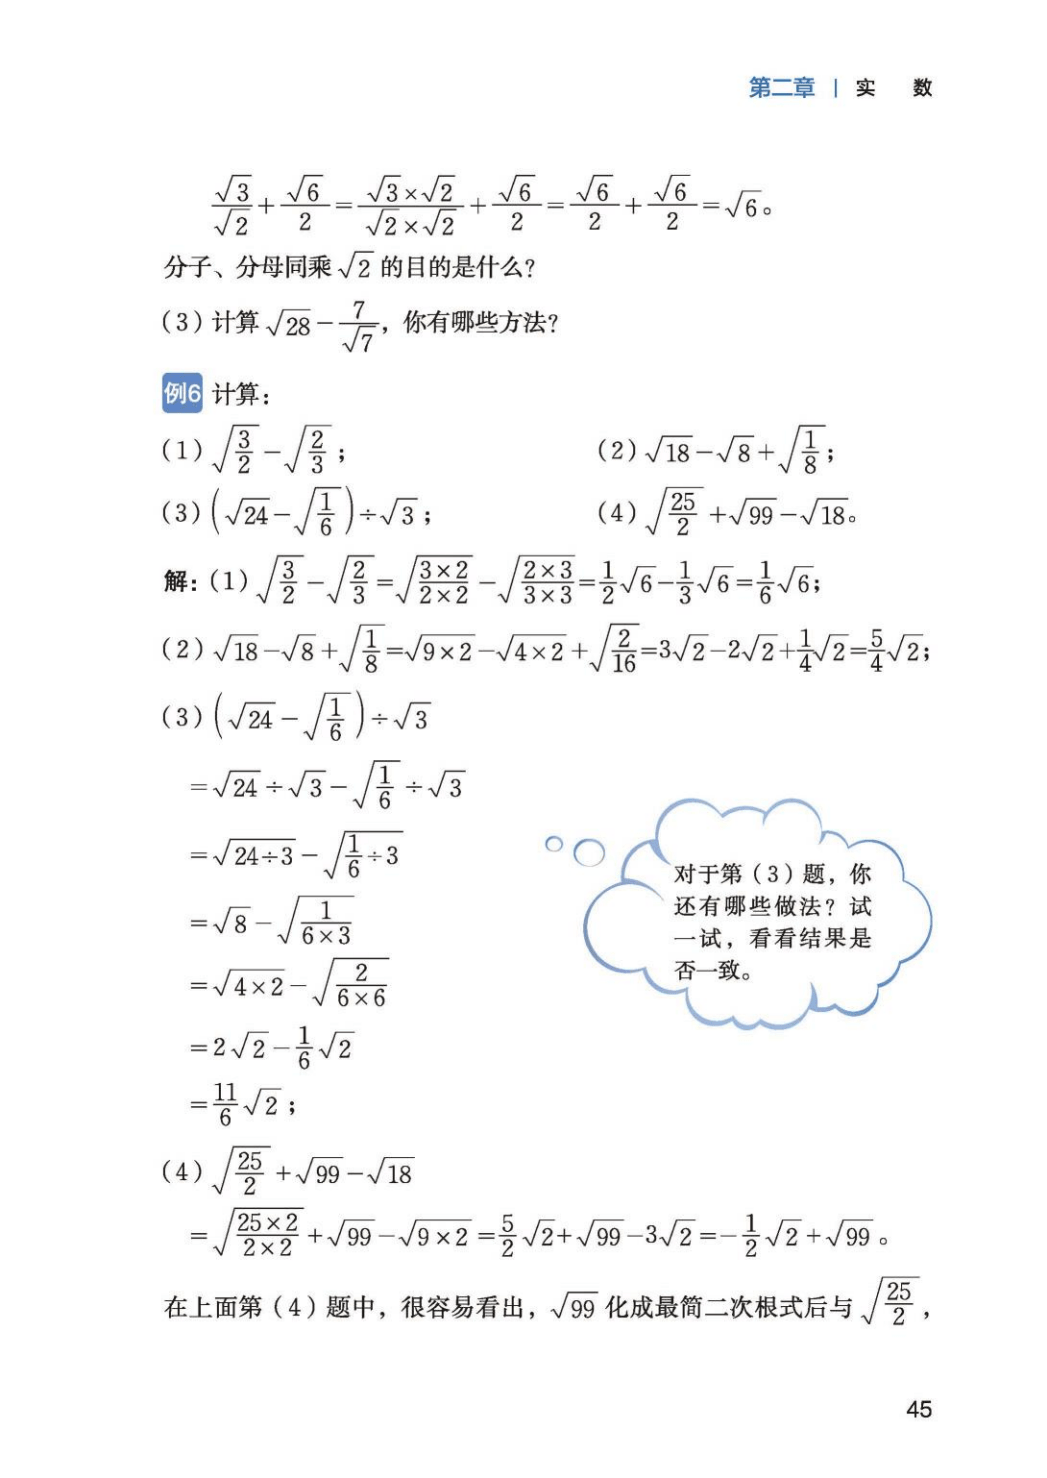 第二章 | 实 数
√3/√2 + √6/2 = (√3×√2)/(√2×√2) + √6/2 = √6/2 + √6/2 = √6。
分子、分母同乘 √2 的目的是什么？
（3）计算 √28 − 7/√7，你有哪些方法？
例6 计算：
（1）√(3/2) − √(2/3)； （2）√18 − √8 + √(1/8)；
（3）(√24 − √(1/6)) ÷ √3； （4）√(25/2) + √99 − √18。
解：（1）√(3/2) − √(2/3) = √((3×2)/(2×2)) − √((2×3)/(3×3)) = 1/2√6 − 1/3√6 = 1/6√6；
（2）√18 − √8 + √(1/8) = √(9×2) − √(4×2) + √(2/16) = 3√2 − 2√2 + 1/4√2 = 5/4√2；
（3）(√24 − √(1/6)) ÷ √3
= √24 ÷ √3 − √(1/6) ÷ √3
= √(24÷3) − √(1/6÷3)
= √8 − √(1/(6×3))
= √(4×2) − √(2/(6×6))
= 2√2 − 1/6√2
= 11/6√2；
对于第（3）题，你
还有哪些做法？试
一试，看看结果是
否一致。
（4）√(25/2) + √99 − √18
= √((25×2)/(2×2)) + √99 − √(9×2) = 5/2√2 + √99 − 3√2 = −1/2√2 + √99。
在上面第（4）题中，很容易看出，√99 化成最简二次根式后与 √(25/2)，
45